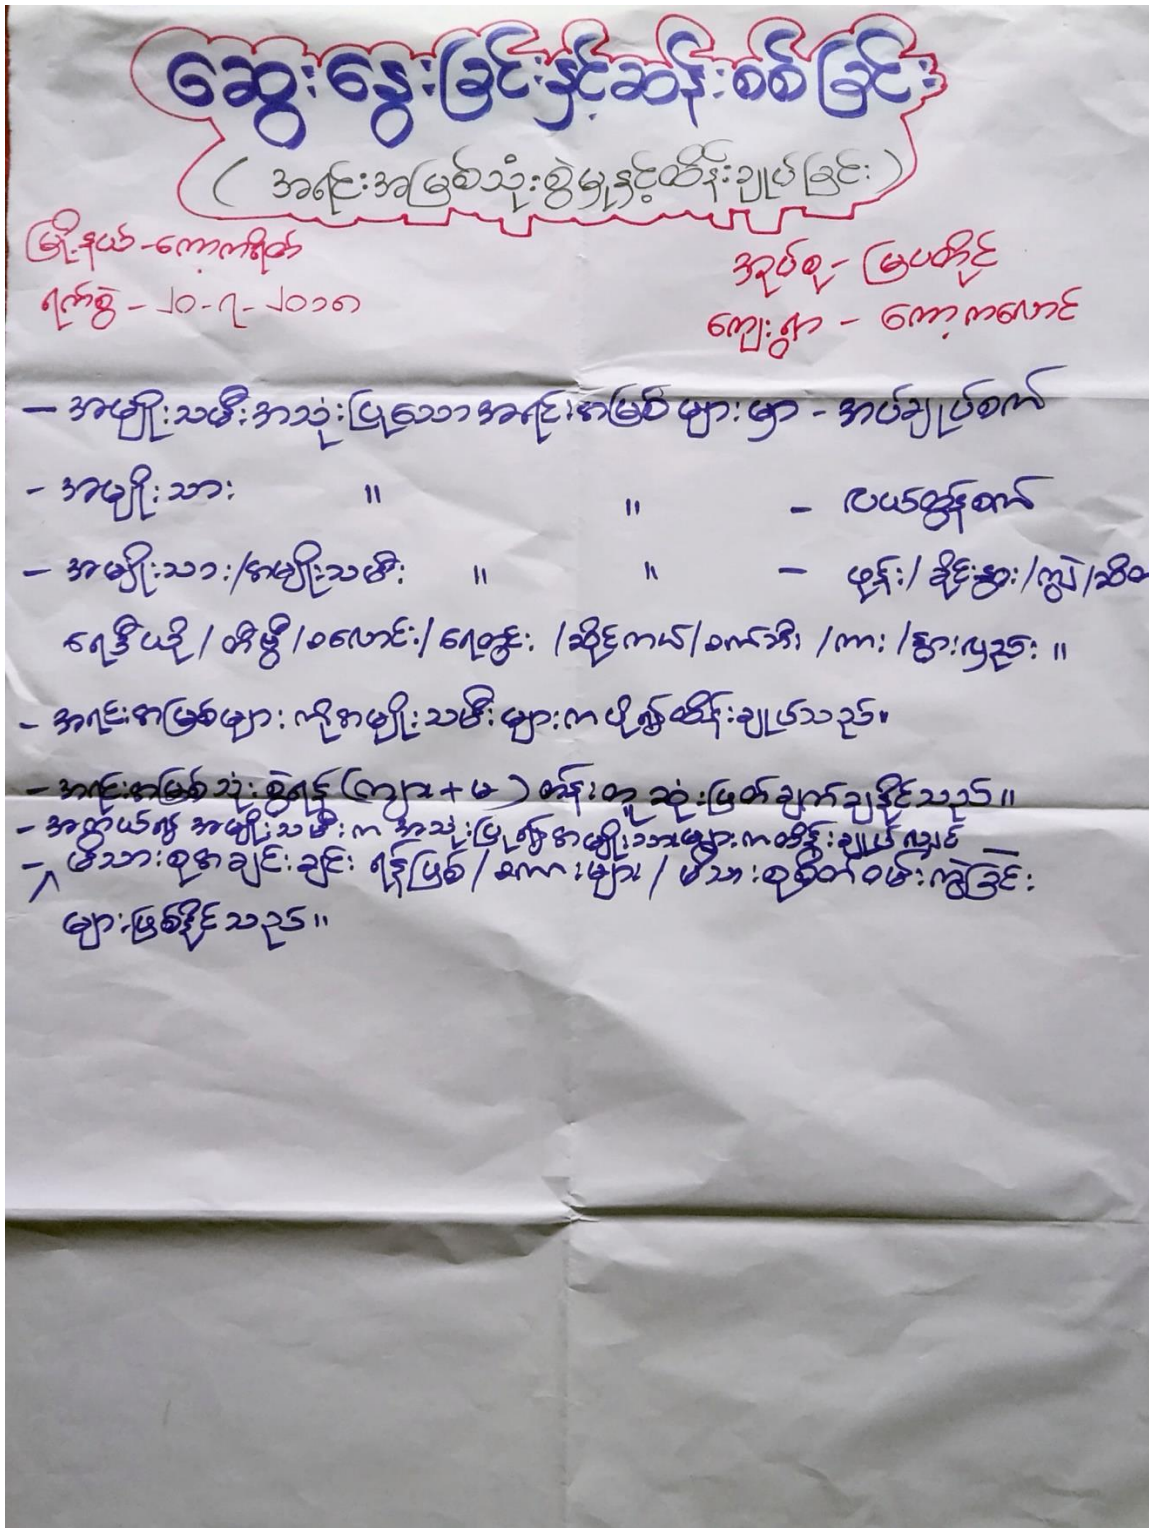 ဆွေးနွေးခြင်းနှင့်ဆန်းစစ်ခြင်း
(အရင်းအမြစ်သုံးစွဲမှုနှင့်ထိန်းချုပ်ခြင်း)
မြို့နယ်-ကော့ကရိတ်
အုပ်စု- မြပတိုင်
ရက်စွဲ - ၂၀-၇-၂၀၁၈
ကျေးရွာ - ကော့ကလောင်
- အမျိုးသမီးအသုံးပြုသောအရင်းအမြစ်များမှာ - အပ်ချုပ်စက်
- အမျိုးသား " " - လယ်ထွန်စက်
- အမျိုးသား/အမျိုးသမီး " " - ဖုန်း/ခိုင်းနွား/ကျွဲ/
ရေဒီယို/တီဗွီ/စလောင်း/ရေတွင်း/ဆိုင်ကယ်/စက်ဘီး/ကား/နွားလှည်း။
- အရင်းအမြစ်များကိုအမျိုးသမီးများကပို၍ထိန်းချုပ်သည်။
- အရင်းအမြစ်သုံးစွဲရန်(ကျား+မ)တန်းတူဆုံးဖြတ်ချက်ချနိုင်သည်။
- အကယ်၍အမျိုးသမီးကအသုံးပြု၍အမျိုးသားများကထိန်းချုပ်လျှင်
- မိသားစုအချင်းချင်းရန်ဖြစ်/စကားများ/မိသားစုစိတ်ဝမ်းကွဲခြင်း
များဖြစ်နိုင်သည်။